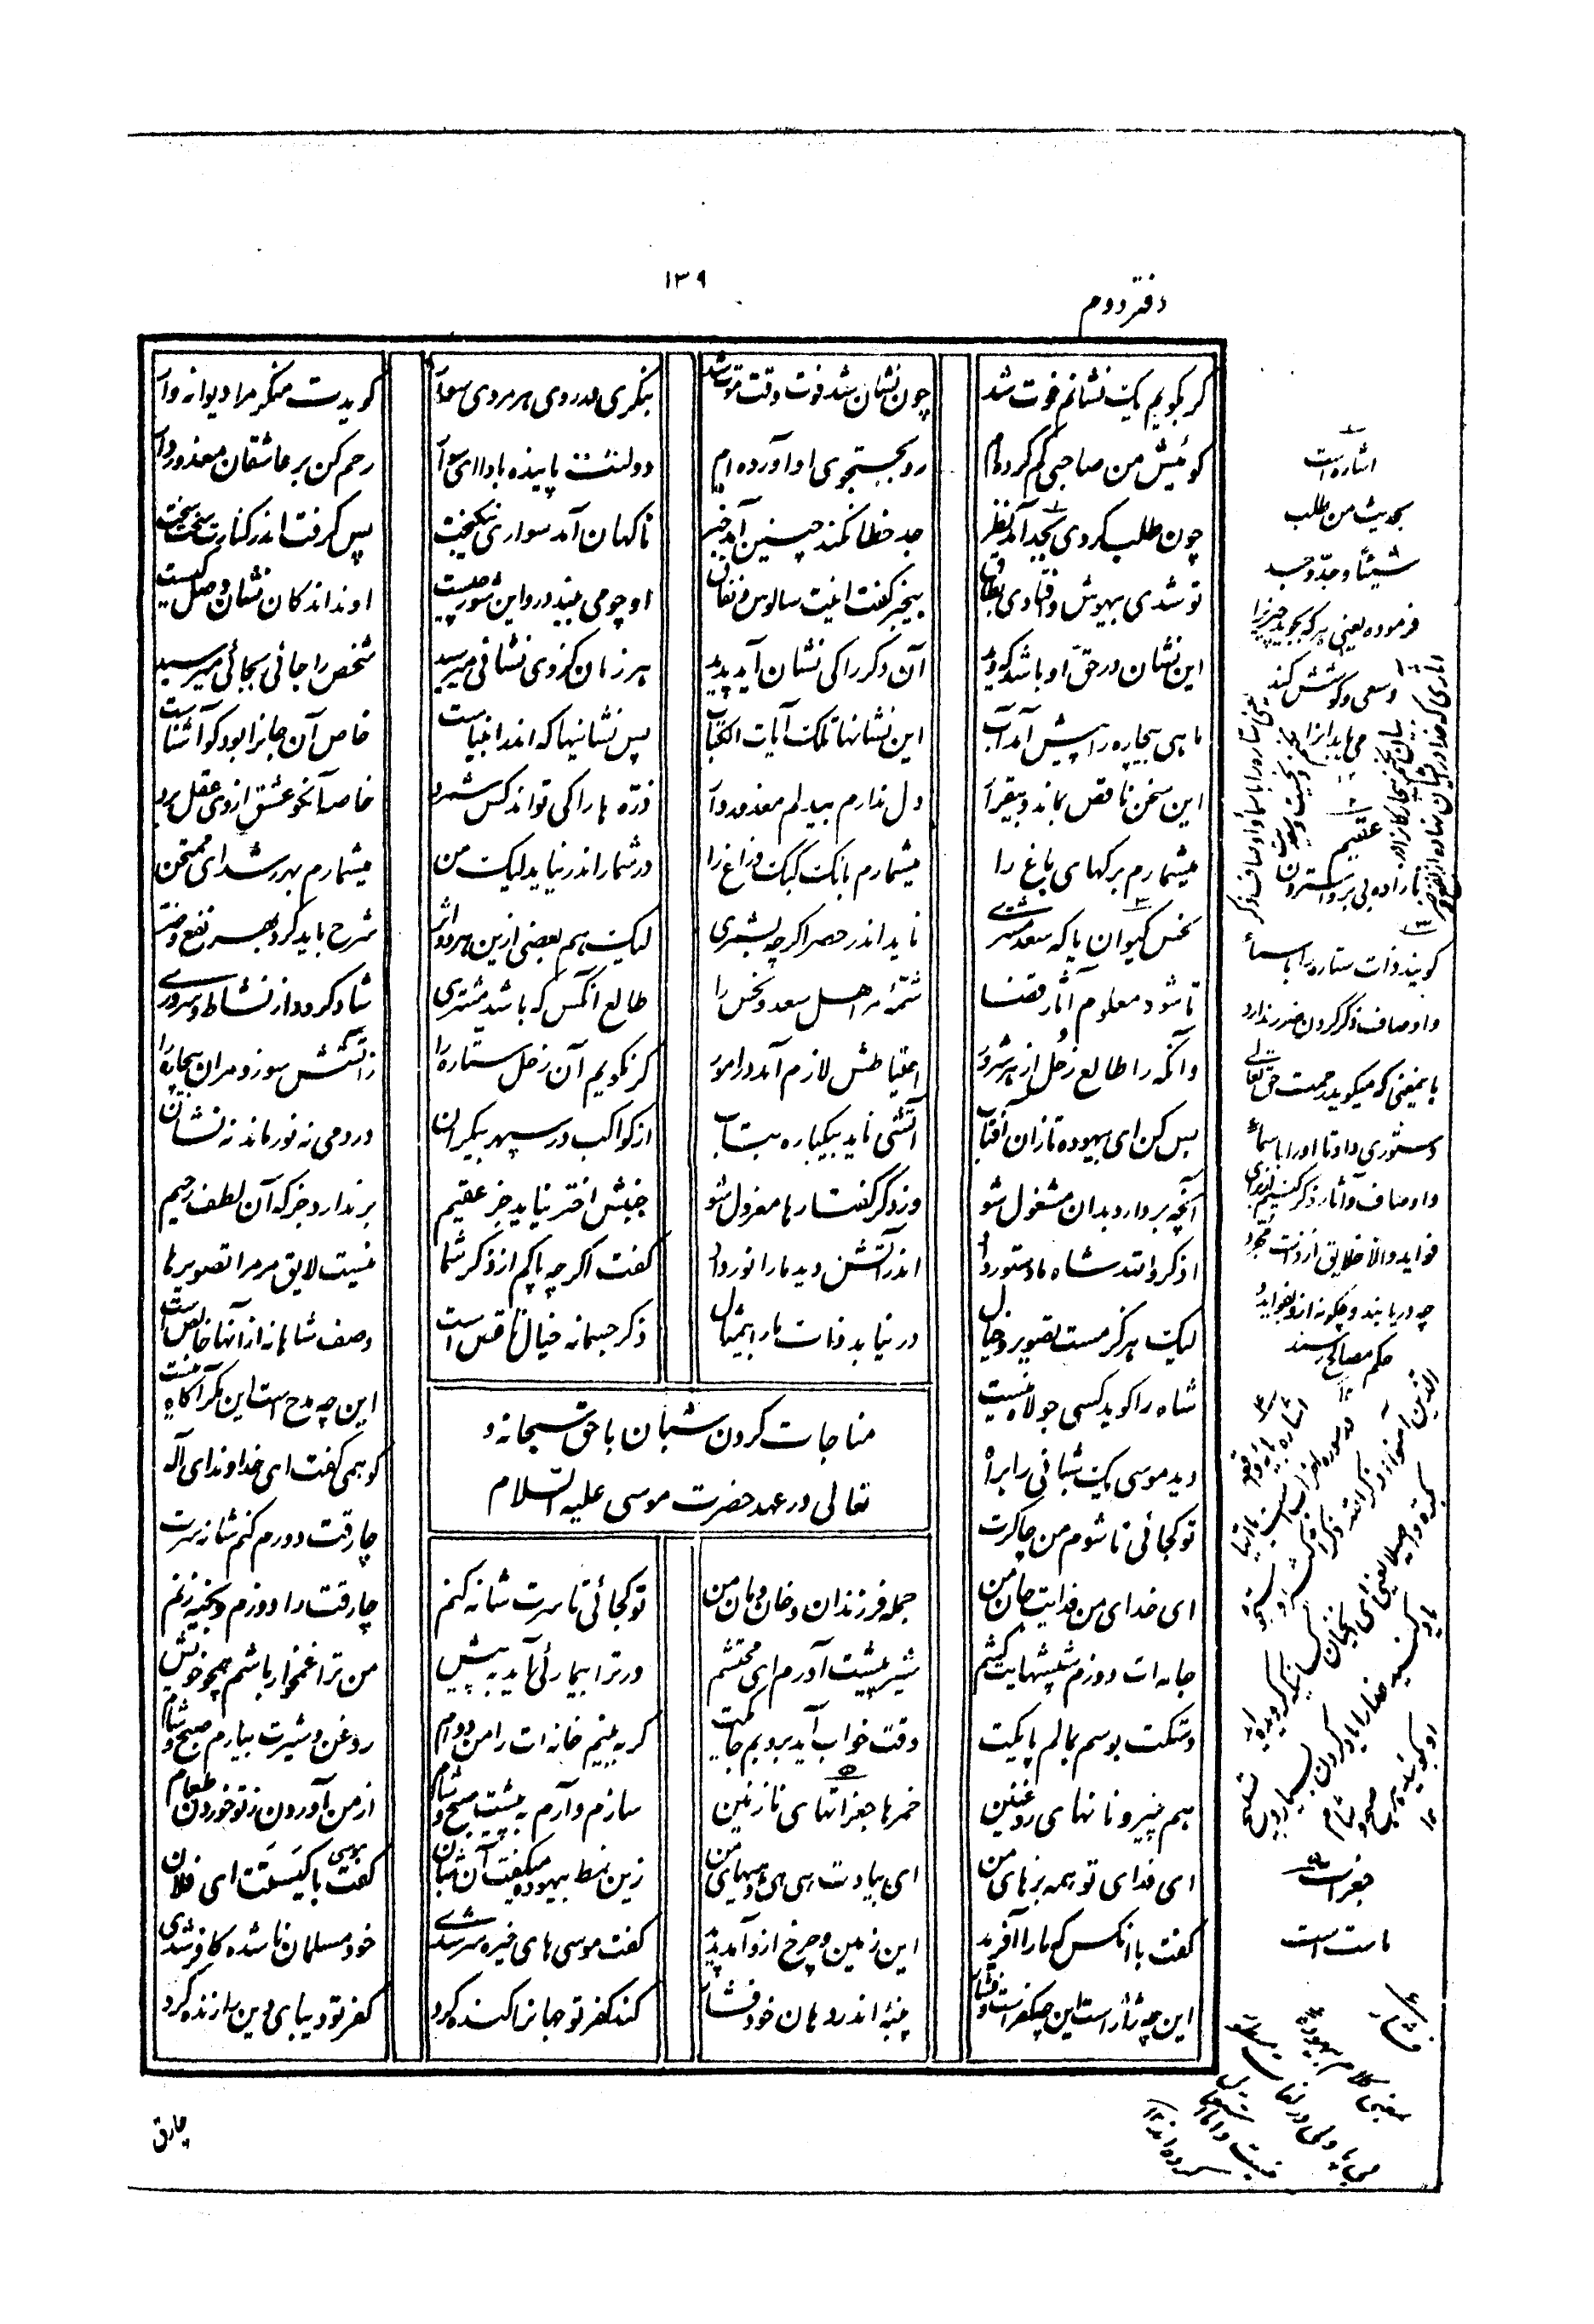 ۱۳۹
دفتر دوم
کر بکویم یک نشانم فوت شد چون نشان شد فوت وقت موت شد بنکری در روی هر مردی سوار کویدت منکر مرا دیوانه وار
کوئیش من صاحبی کم کرده‌ام رو بجستجوی او آورده ام دولتت پاینده بادا ای سوار رحم کن بر عاشقان معذور دار
چون طلب کردی بجد آمد نظر جد خطا نکند چنین آمد خبر ناکهان آمد سواری نیکبخت پس کرفت اندر کنارت سخت سخت
تو شدی بیهوش و فتادی بطاق بیخبر کفت اینت سالوس و نفاق او چو می بیند در و این شور چیست او نداند کان نشان وصل کیست
این نشان در حق او باشد که دید آن دکر را کی نشان آید پدید هر زمان کز وی نشانی میرسید شخص را جانی بجانی میرسید
ماهی بیچاره را پیش آمد آب این نشانها تلک آیات الکتاب پس نشانیها که اندر انبیاست خاص آن جانرا بود کو آشناست
این سخن ناقص بماند و بیقرار دل ندارم بیدلم معذور دار ذره ها را کی تواند کس شمرد خاصه آنکو عشق از وی عقل برد
میشمارم برکهای باغ را میشمارم بانک کبک و زاغ را در شمار اندر نیاید لیک من میشمارم بهر رشد ای ممتحن
نحس کیوان یا که سعد مشتری ناید اندر حصر اکرچه بشمری لیک هم بعضی ازین هر دو اثر شرح باید کرد بهر نفع و ضر
تا شود معلوم آثار قضا شمه مر اهل سعد و نحس را طالع انکس که باشد مشتری شاد کردد از نشاط و سروری
وانکه را طالع زحل از هر شرور احتیاطش لازم آید در امور کر نکویم آن زحل ستاره را ز آتشش سوزد مر ان بیچاره را
بس کن ای بیهوده تا زان آفتاب آتشی ناید بیکباره بتاب از کواکب در سپهر بیکران در دمی نه نور ماند نه نشان
آنچه بر دارد بدان مشغول شو وز دکر کفتارها معزول شو جنبش اختر نیاید جز عقیم بر ندارد جز که آن لطف رحیم
اذکروا الله شاه ما دستور داد اندر آتش دید ما را نور داد کفت اکرچه پاکم از ذکر شما نیست لایق مر مرا تصویرها
لیک هرکز مست تصویر و خیال در نیابد ذات ما را بیمثال ذکر جسمانه خیال ناقص است وصف شاهانه از آنها خالص است
شاه را کوید کسی جولاه نیست این چه مدح است این مکر آکاه نیست
مناجات کردن شبان با حق سبحانه و
تعالی در عهد حضرت موسی علیه السلام
دید موسی یک شبانی را براه کو همی کفت ای خداوند ای اله
تو کجائی تا شوم من چاکرت چارقت دوزم کنم شانه سرت
ای خدای من فدایت جان من جمله فرزندان و خان و مان من تو کجائی تا سرت شانه کنم چارقت را دوزم و بخیه زنم
جامه ات دوزم شپشهایت کشم شیر پیشت آورم ای محتشم ور ترا بیمارئی آید به پیش من ترا غمخوار باشم همچو خویش
دستکت بوسم بمالم پایکت وقت خواب آید بروبم جایکت کر به بینم خانه ات را من دوام روغن و شیرت بیارم صبح و شام
هم پنیر و نانهای روغنین خمرها جغراتهای نازنین سازم و آرم به پیشت صبح و شام از من آوردن ز تو خوردن طعام
ای فدای تو همه بزهای من ای بیادت هی هی و هیهای من زین نمط بیهوده میکفت آن شبان کفت موسی با کیستت ای فلان
کفت با انکس که ما را آفرید این زمین و چرخ ازو آمد پدید کفت موسی های خیره سر شدی خود مسلمان ناشده کافر شدی
این چه ژاژ است این چه کفر است و فشار پنبۀ اندر دهان خود فشار کند کفر تو جهانرا کنده کرد کفر تو دیبای دین را ژنده کرد
اشاره است
بحدیث من طلب
شیئا و جد وجد
فرموده یعنی هر که بجوید چیزیرا
و سعی و کوشش کند
می یابد انرا
عقیم
کویند ذات ستاره را باسماء
و اوصاف ذکر کردن ضرر ندارد
باینمعنی که میکوید رحمت حق تعالی
دستوری داد تا او را باسماء
و اوصاف و آثار ذکر کنیم برای
فواید والا خلایق از ذات مجرد
چه دریابند و چکونه ازو بفواید و
حکم مصالح رسند
جغرات
ماست است
چارق